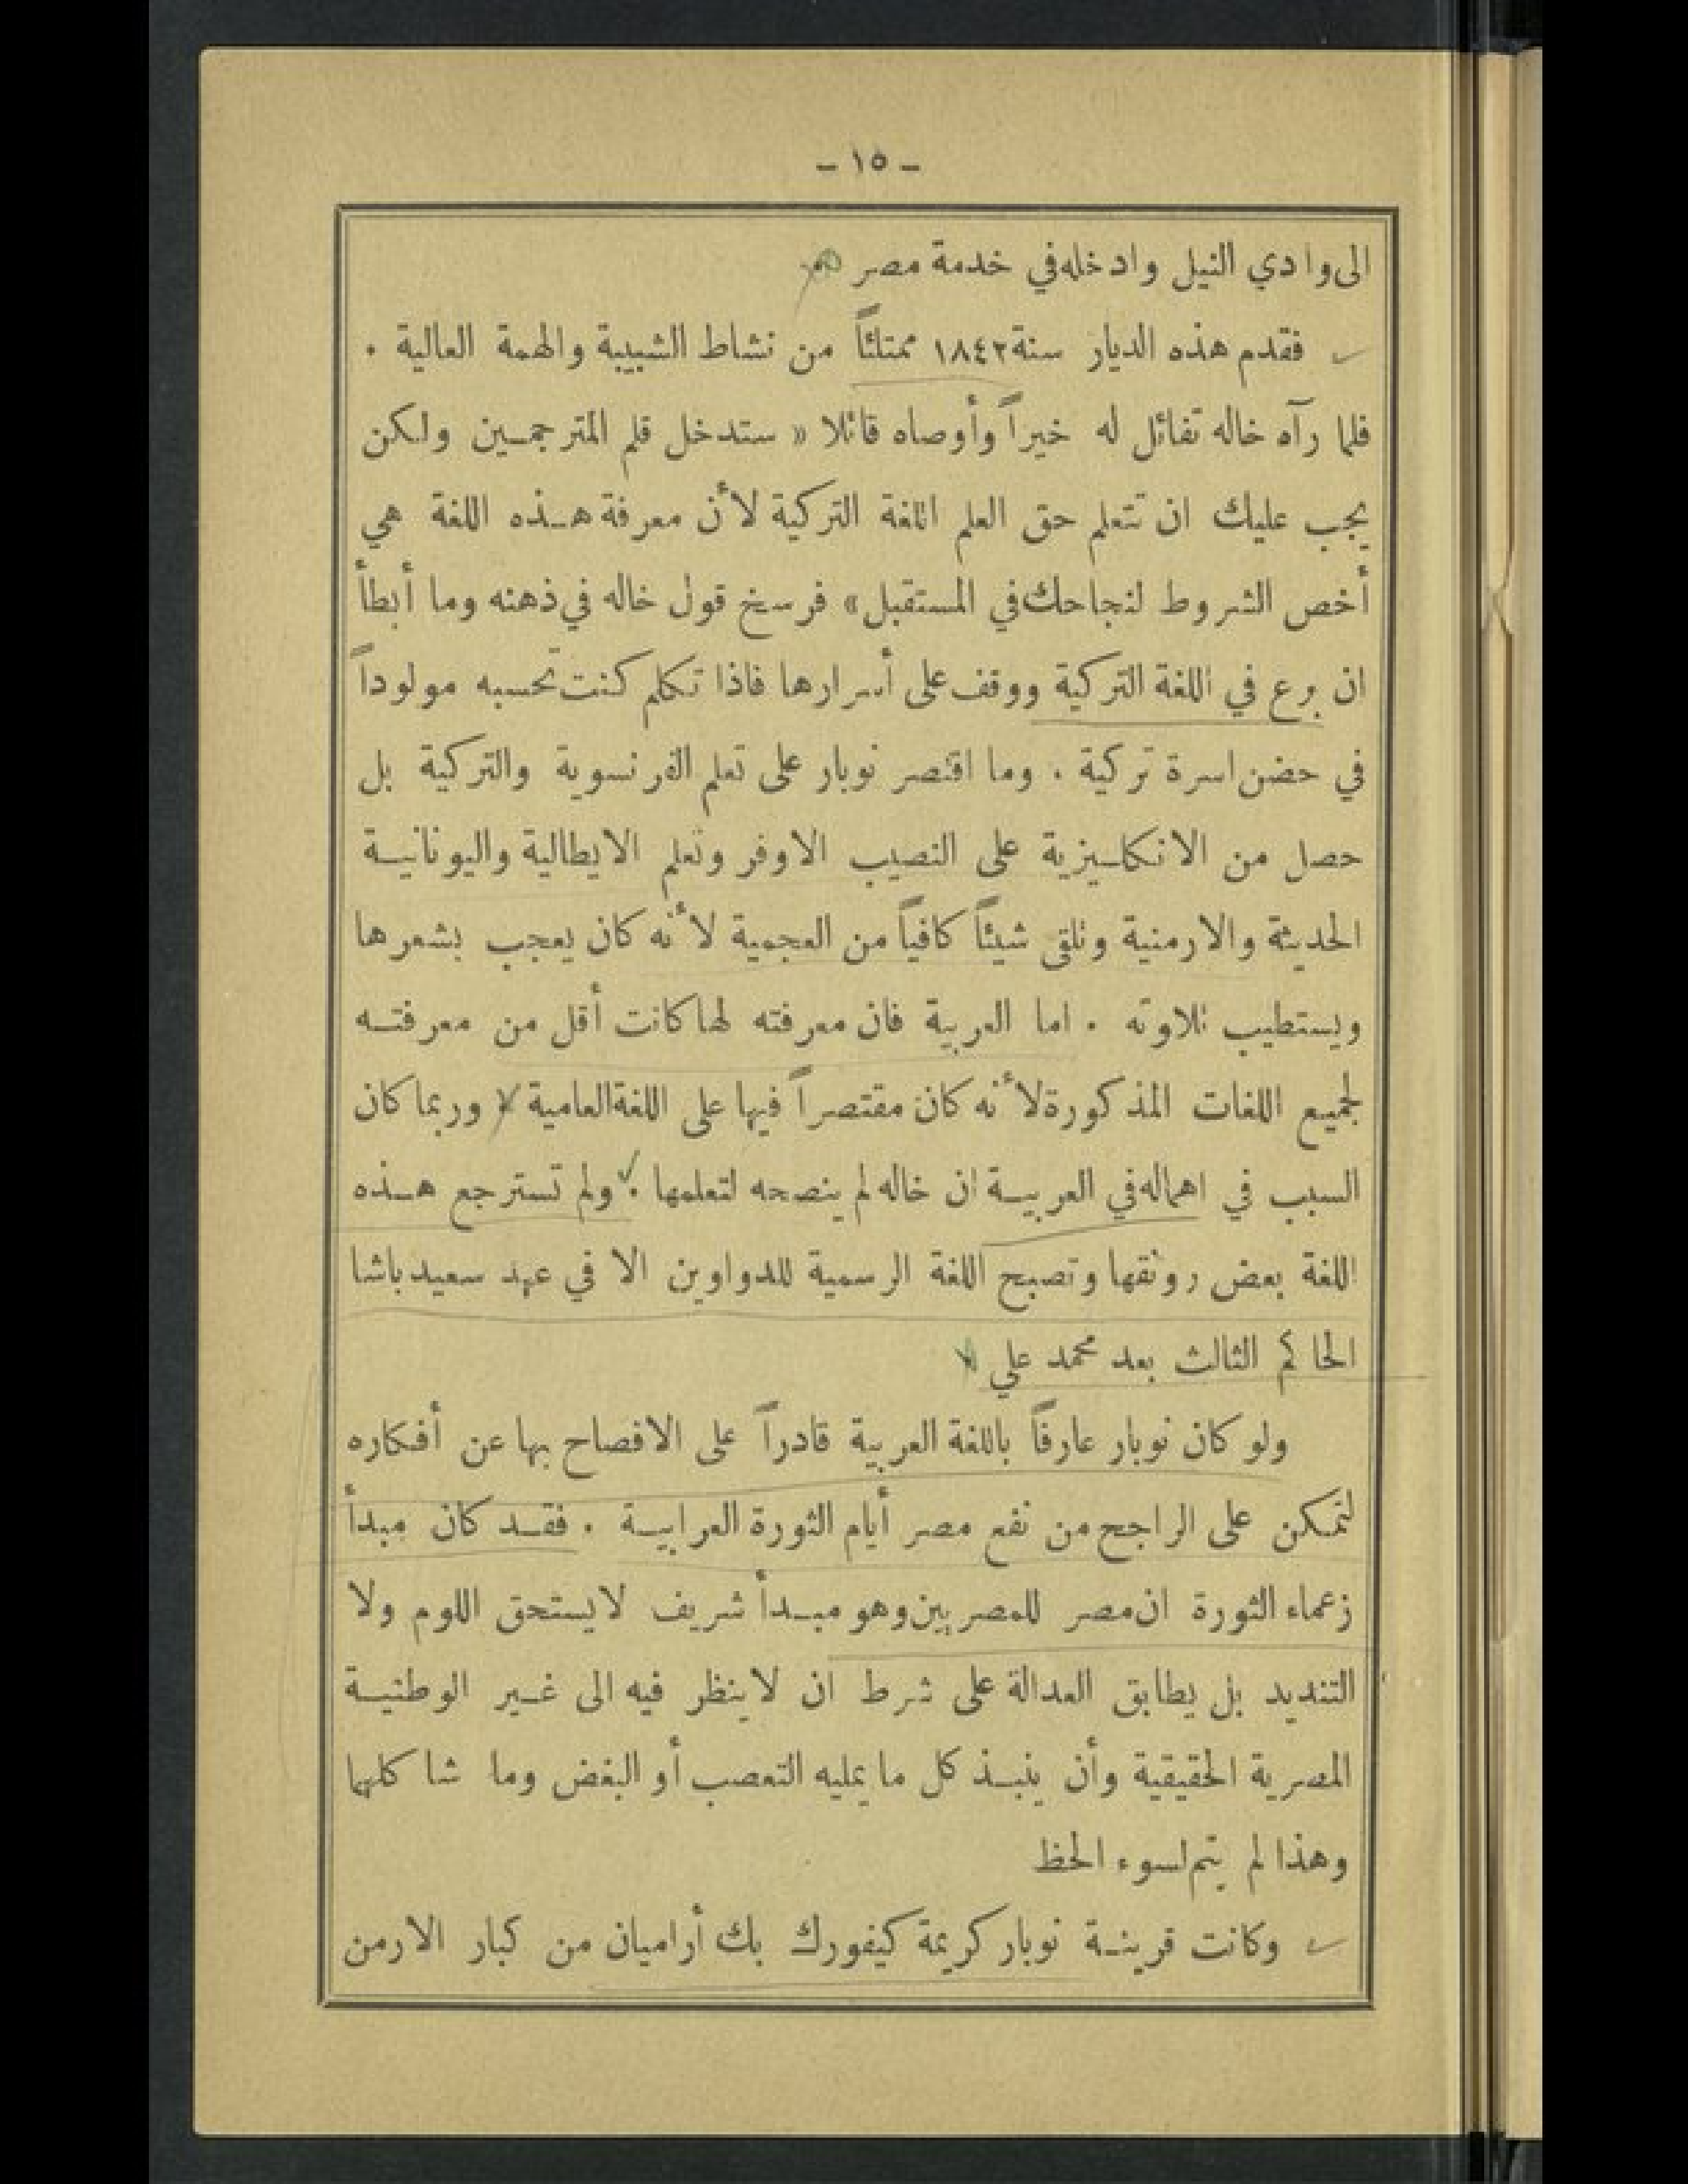 - ١٥ -
الى وادي النيل وادخله في خدمة مصر
فقدم هذه الديار سنة ١٨٤٢ ممتلئاً من نشاط الشبيبة والهمة العالية .
فلما رآه خاله تفائل له خيراً وأوصاه قائلا « ستدخل قلم المترجمين ولكن
يجب عليك ان تتعلم حق العلم اللغة التركية لأن معرفة هذه اللغة هي
أخص الشروط لنجاحك في المستقبل » فرسخ قول خاله في ذهنه وما أبطأ
ان برع في اللغة التركية ووقف على أسرارها فاذا تكلم كنت تحسبه مولوداً
في حضن اسرة تركية . وما اقتصر نوبار على تعلم الفرنسوية والتركية بل
حصل من الانكليزية على النصيب الاوفر وتعلم الايطالية واليونانية
الحديثة والارمنية وتلقى شيئاً كافياً من العجمية لأنه كان يعجب بشعرها
ويستطيب تلاوته . اما العربية فان معرفته لها كانت أقل من معرفته
لجميع اللغات المذكورة لأنه كان مقتصراً فيها على اللغة العامية وربما كان
السبب في اهماله في العربية ان خاله لم ينصحه لتعلمها . ولم تسترجع هذه
اللغة بعض رونقها وتصبح اللغة الرسمية للدواوين الا في عهد سعيد باشا
الحاكم الثالث بعد محمد علي
ولو كان نوبار عارفاً باللغة العربية قادراً على الافصاح بها عن أفكاره
لتمكن على الراجح من نفع مصر أيام الثورة العرابية . فقد كان مبدأ
زعماء الثورة ان مصر للمصريين وهو مبدأ شريف لا يستحق اللوم ولا
التنديد بل يطابق العدالة على شرط ان لا ينظر فيه الى غير الوطنية
المصرية الحقيقية وأن ينبذ كل ما يمليه التعصب أو البغض وما شاكلهما
وهذا لم يتم لسوء الحظ
وكانت قرينة نوبار كريمة كيفورك بك أراميان من كبار الارمن